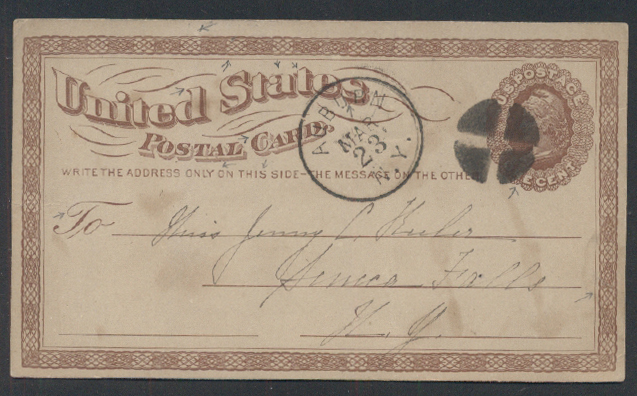 United States
U.S. POSTAGE
POSTAL CARD.
ALBION
MAR
23
N.Y.
ONE CENT
WRITE THE ADDRESS ONLY ON THIS SIDE–THE MESSAGE ON THE OTHE
To Miss Jenny C.
Seneca Falls
N. Y.